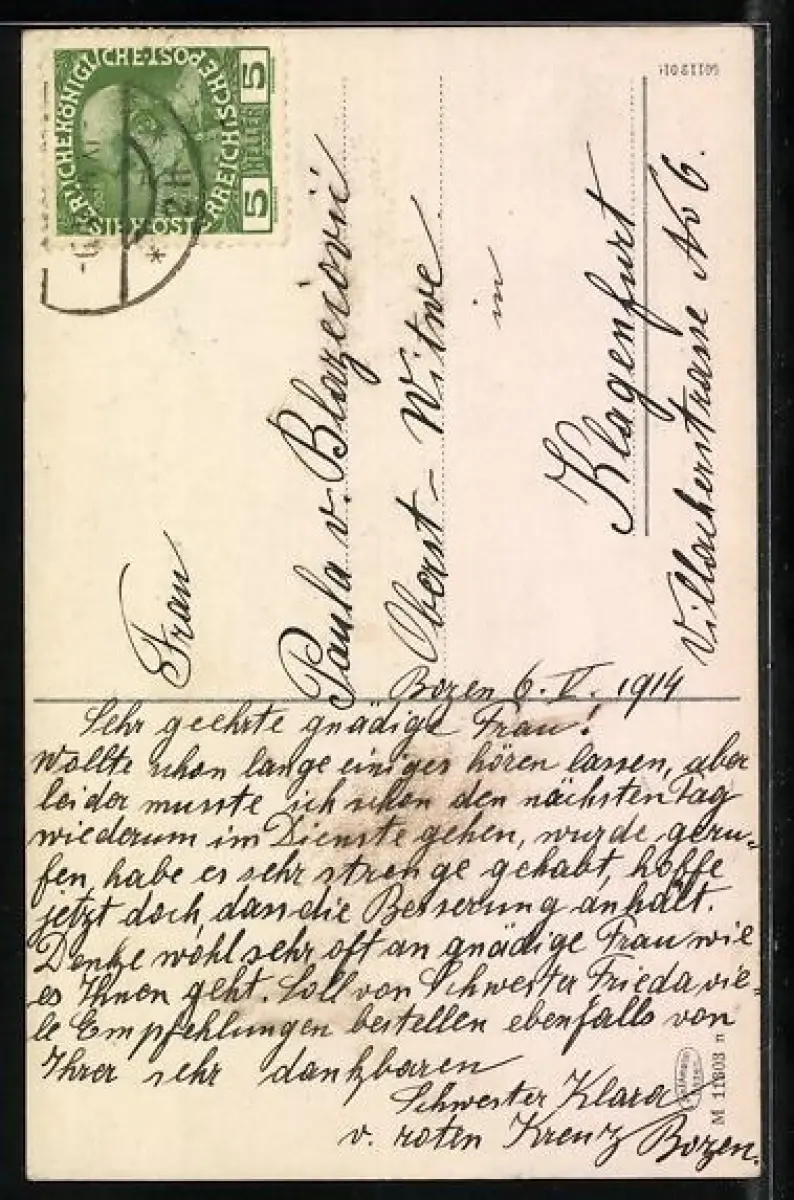 5 HELLER 5
Frau
Paula v. Blazeiović
Oberst-Witwe
in
Klagenfurt
Villacherstrasse No 6.
Bozen 6. V. 1914
Sehr geehrte gnädige Frau!
Wollte schon lange einiges hören lassen, aber
leider musste ich schon den nächsten Tag
wiederum im Dienste gehen, wurde geru-
fen, habe es sehr strenge gehabt, hoffe
jetzt doch, dass die Besserung anhält.
Denke wohl sehr oft an gnädige Frau wie
es Ihnen geht. Soll von Schwester Frieda vie-
le Empfehlungen bestellen ebenfalls von
Ihrer sehr dankbaren
Schwester Klara
v. roten Kreuz Bozen.
M 11803 n